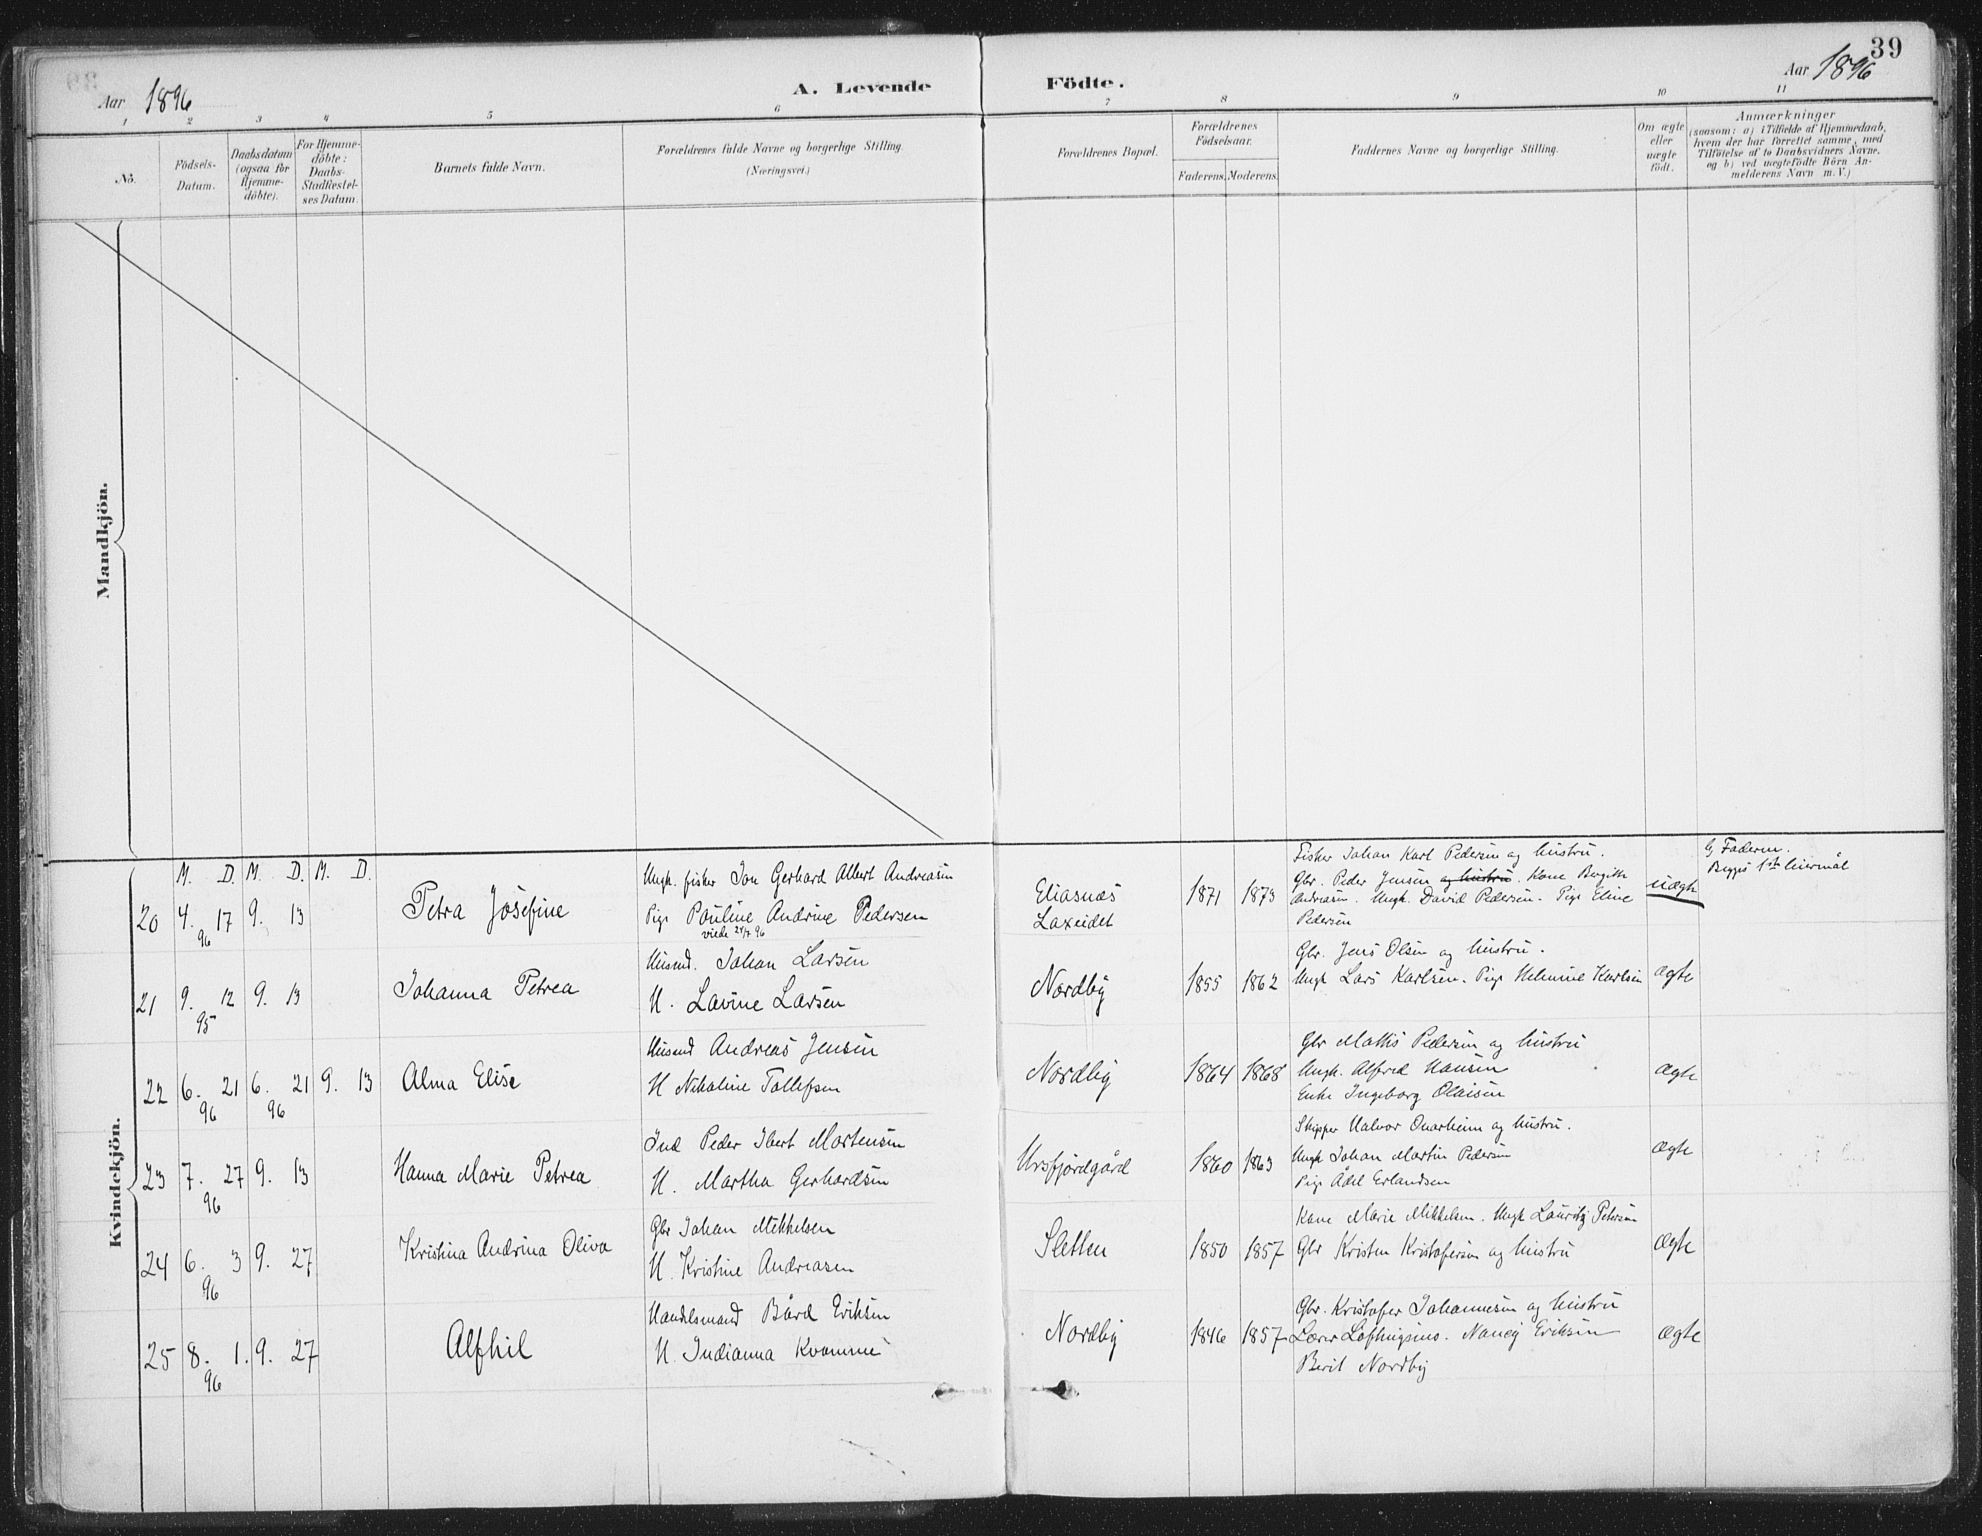 39
Aar 1896
A. Levende Födte.
Aar 1896
1 2 3 4 5 6 7 8 9 10 11
No.
Födsels-
Datum.
Daabsdatum
(ogsaa for
Hjemme-
döbte).
For Hjemme-
döbte:
Daabs-
Stadfæstel-
ses Datum.
Barnets fulde Navn.
Forældrenes fulde Navne og borgerlige Stilling.
(Næringsvei.)
Forældrenes Bopæl.
Forældrenes
Födselsaar.
Faderens. Moderens.
Faddernes Navne og borgerlige Stilling.
Om ægte
eller
uægte
født.
Anmærkninger
(saasom: a) i Tilfælde af Hjemmedaab,
hvem der har forrettet samme, med
Tilföielse af to Daabsvidners Navne,
og b) ved uægtefödte Börn An-
melderens Navn m. V.)
Mandkjön.
Kvindekjön.
M. D. M. D. M. D.
20 4. 17 9. 13
96
Petra Josefine
Ungk. fisker Jon Gerhard Albert Andreasen
Pige Pauline Andrine Pedersen
viede 24/7 96
Eliasnæs
Laxeidet
1871 1873
Fisker Johan Karl Pedersen og hustru.
Gbr. Peder Jensen og hustru. Kone Bergith
Andreasen. Ungk. David Pedersen. Pige Eline
Pedersen
uægte
Faderen.
Begges 1ste leiermål
21 9. 12 9. 13
95
Johanna Petrea
Husmd. Johan Larsen
H. Lavine Larsen
Nordby
1855 1862
Gbr. Jens Olsen og hustru.
Ungk Lars Karlsen. Pige Helmine Karlsen
ægte
22 6. 21 6. 21 9. 13
96 96
Alma Elise
Husmd Andreas Jensen
H Nikoline Tollefsen
Nordby
1864 1868
Gbr Mathis Pedersen og hustru
Ungk. Alfred Hansen
Enke Ingeborg Olaisen
ægte
23 7. 27 9. 13
96
Hanna Marie Petrea
Ind Peder Ibert Mortensen
H. Martha Gerhardsen
Ursfjordgård
1860 1863
Skipper Halvor Qvarheim og hustru.
Ungk Johan Martin Pedersen
Pige Ådel Erlandsen
ægte
24 6. 3 9. 27
96
Kristina Andrina Oliva
Gbr Johan Mikkelsen
H. Kristine Andreasen
Sletten
1850 1857
Kone Marie Mikkelsen. Ungk Lauritz Petersen
Gbr Kristen Kristofersen og hustru
ægte
25 8. 1. 9. 27
96
Alfhil
Handelsmand Bård Eriksen
H. Indianna Kvamme
Nordby
1846 1857
Gbr. Kristofer Johannesen og hustru
Lærer Løfhugsmo. Nancy Eriksen
Berit Nordby
ægte